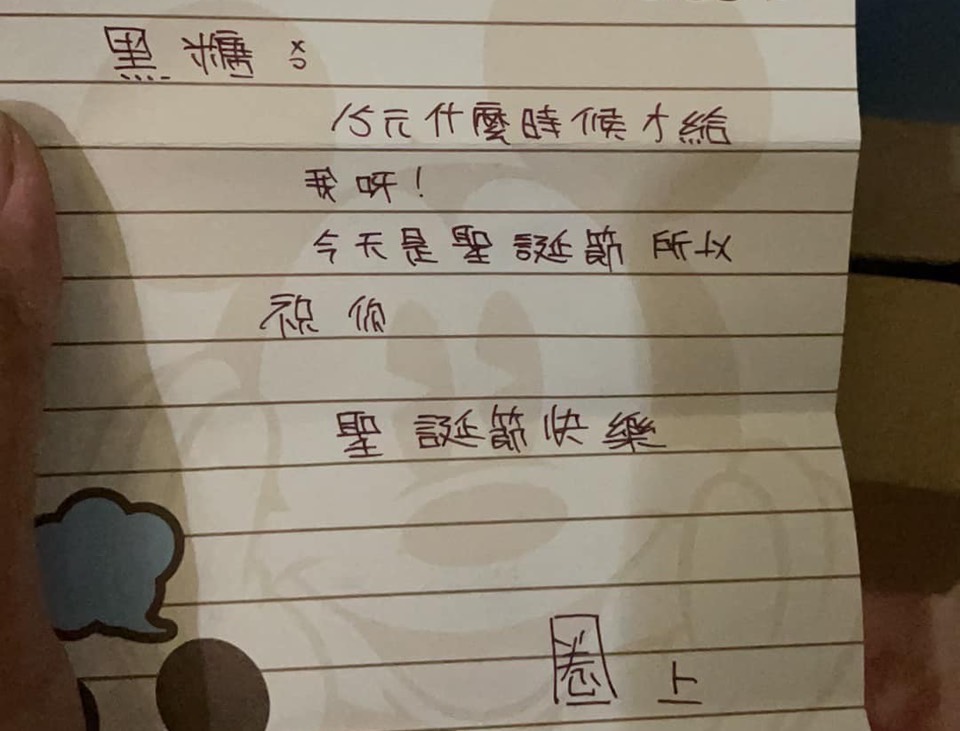 黑糖：
15元什麼時候才給
我呀！
今天是聖誕節所以
祝你
聖誕節快樂
圈上